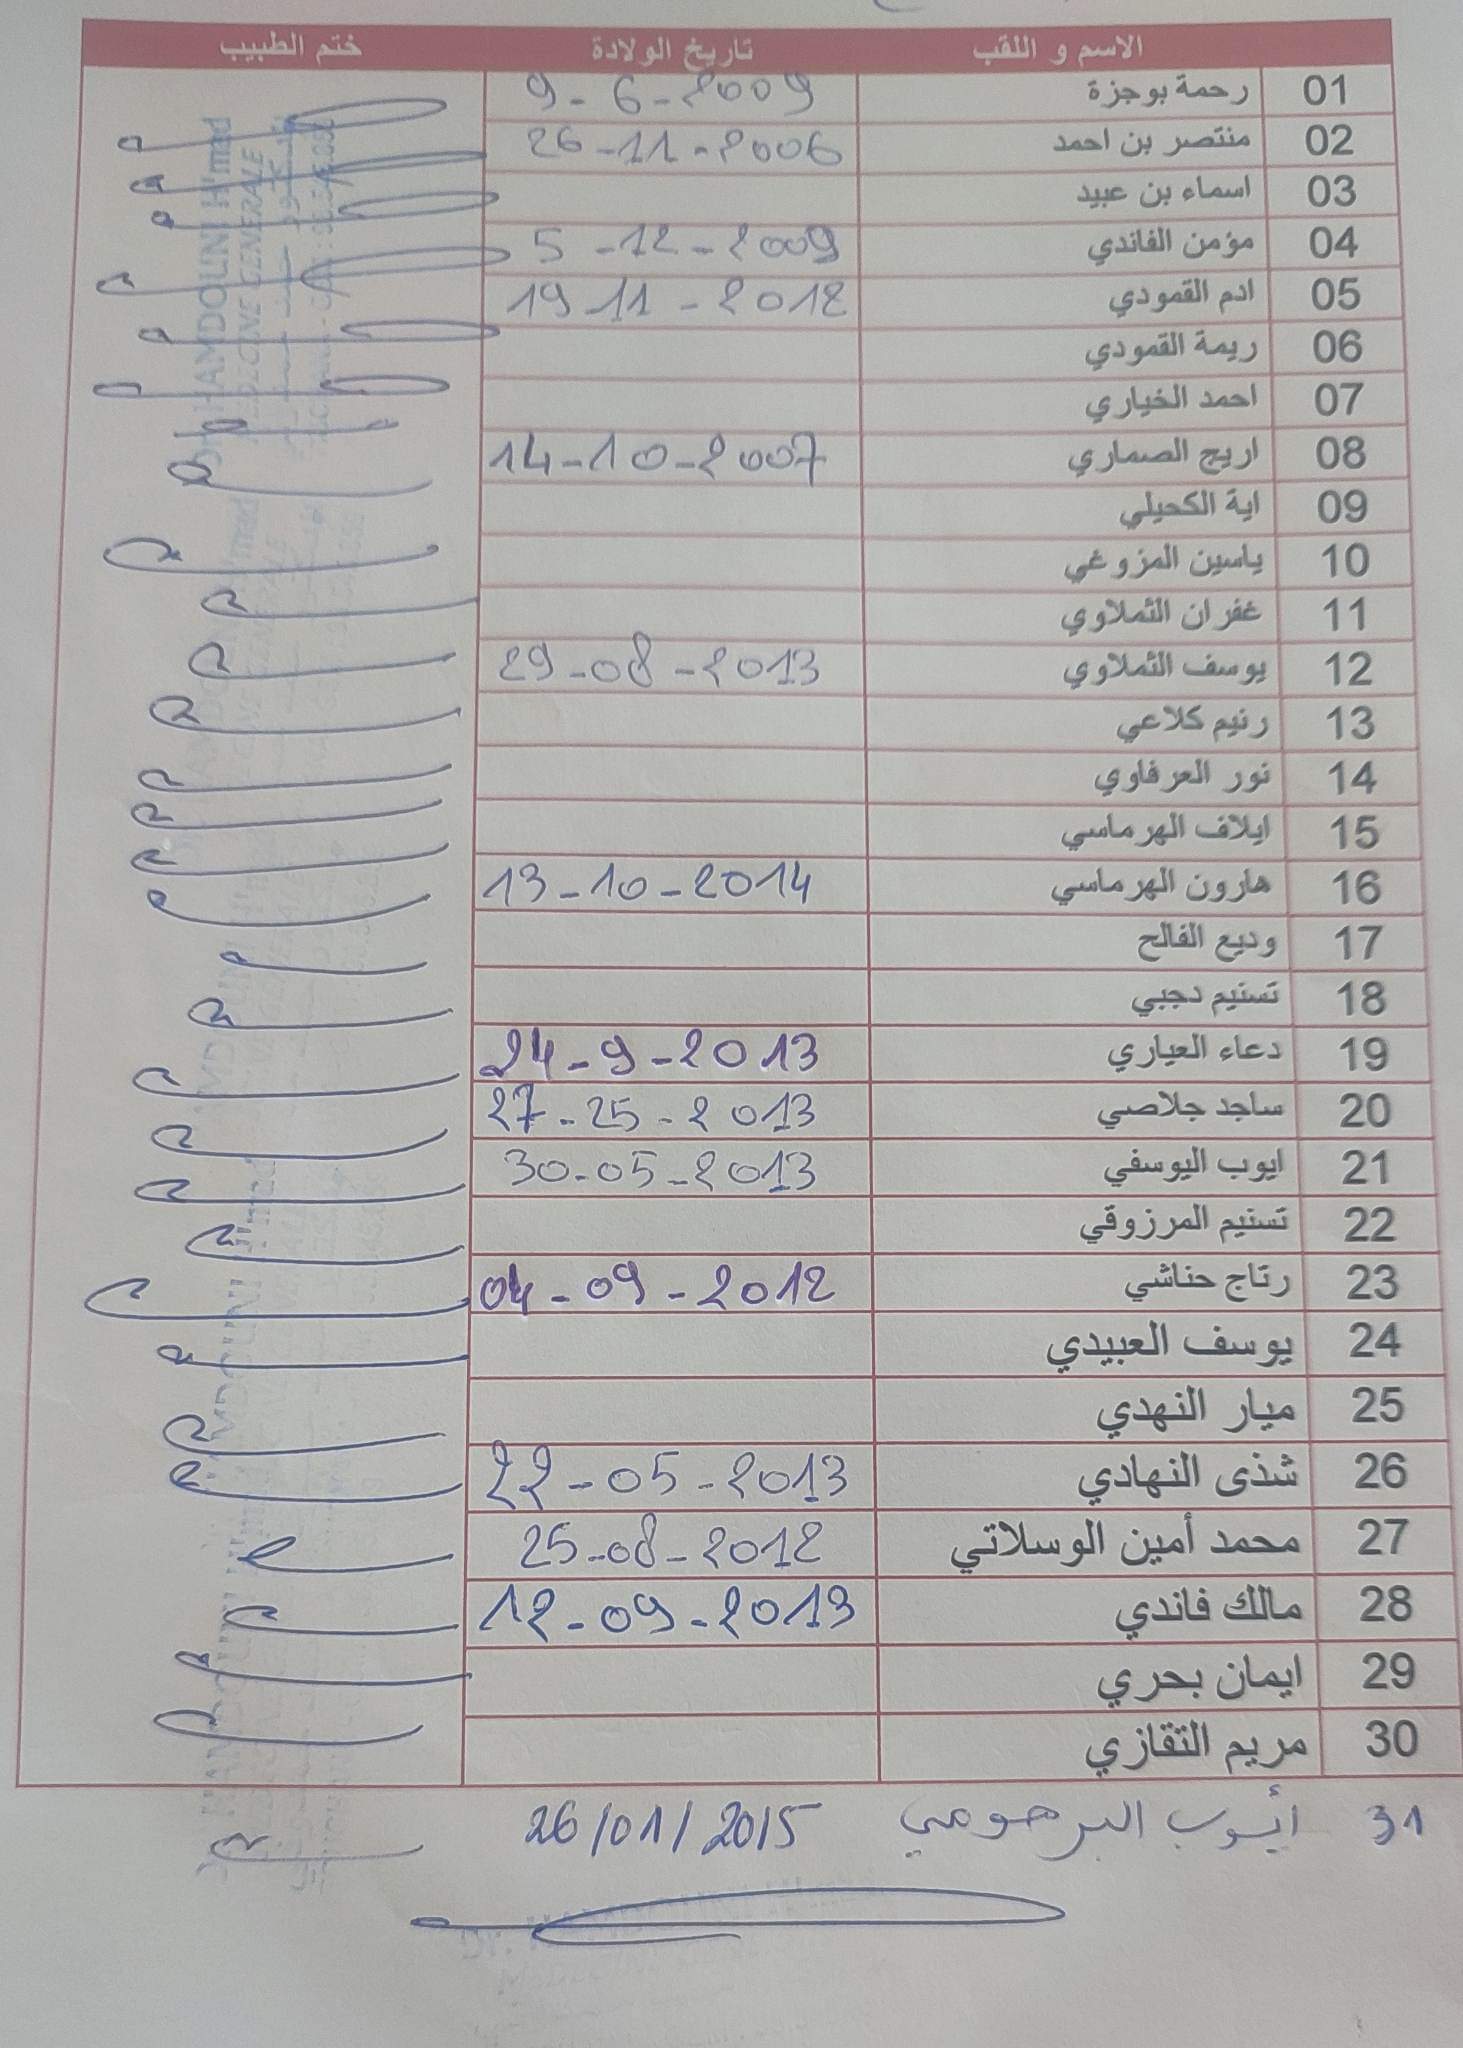 الاسم و اللقب تاريخ الولادة ختم الطبيب
01 رحمة بوجزة 9-6-2009
02 منتصر بن احمد 26-11-2006
03 اسماء بن عبيد
04 مؤمن الفاندي 5-12-2009
05 ادم القمودي 19 11-2012
06 ريمة القمودي
07 احمد الخياري
08 اريج الصماري 14-10-2007
09 اية الكحيلي
10 ياسين المزوغي
11 غفران الثملاوي
12 يوسف الثملاوي 29-08-2013
13 رنيم كلاعي
14 نور العرفاوي
15 ايلاف الهرماسي
16 هارون الهرماسي 13-10-2014
17 وديع الفالح
18 تسنيم دجبي
19 دعاء العياري 24-9-2013
20 ساجد جلاصي 27-25-2013
21 ايوب اليوسفي 30-05-2013
22 تسنيم المرزوقي
23 رتاج حناشي 04-09-2012
24 يوسف العبيدي
25 ميار النهدي
26 شذى النهادي 22-05-2013
27 محمد أمين الوسلاتي 25-08-2012
28 مالك فاندي 12-09-2013
29 ايمان بحري
30 مريم التقازي
31 أيوب البرهومي 26/01/2015
HAMDOUNI H'med
MEDECINE GENERALE